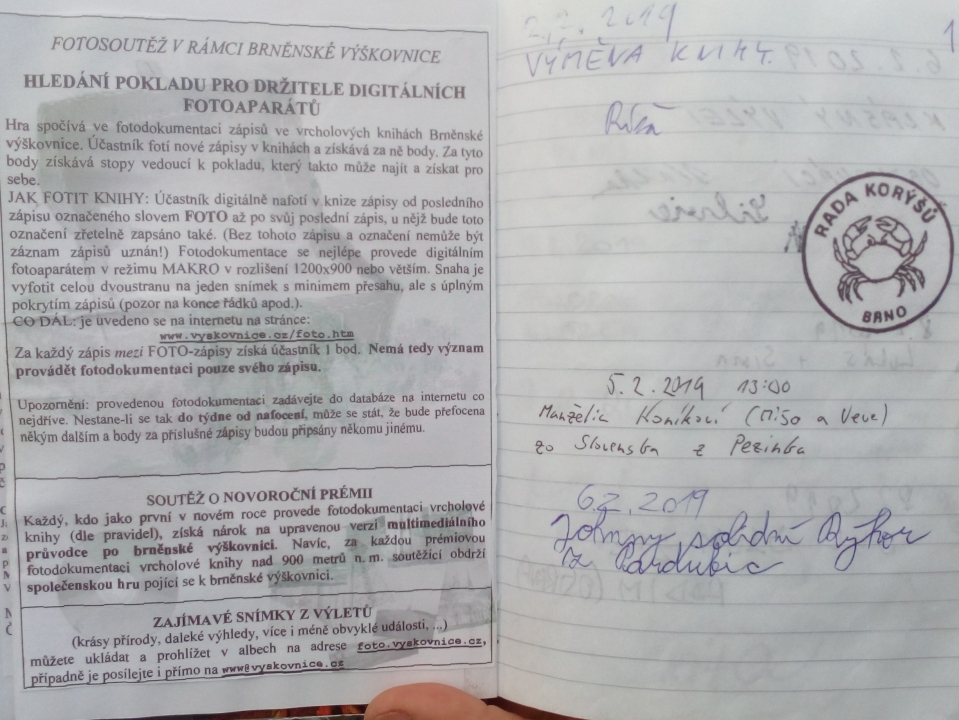 FOTOSOUTĚŽ V RÁMCI BRNĚNSKÉ VÝŠKOVNICE
HLEDÁNÍ POKLADU PRO DRŽITELE DIGITÁLNÍCH
FOTOAPARÁTŮ
Hra spočívá ve fotodokumentaci zápisů ve vrcholových knihách Brněnské
výškovnice. Účastník fotí nové zápisy v knihách a získává za ně body. Za tyto
body získává stopy vedoucí k pokladu, který takto může najít a získat pro
sebe.
JAK FOTIT KNIHY: Účastník digitálně nafotí v knize zápisy od posledního
zápisu označeného slovem FOTO až po svůj poslední zápis, u nějž bude toto
označení zřetelně zapsáno také. (Bez tohoto zápisu a označení nemůže být
záznam zápisů uznán!) Fotodokumentace se nejlépe provede digitálním
fotoaparátem v režimu MAKRO v rozlišení 1200x900 nebo větším. Snaha je
vyfotit celou dvoustranu na jeden snímek s minimem přesahu, ale s úplným
pokrytím zápisů (pozor na konce řádků apod.).
CO DÁL: je uvedeno se na internetu na stránce:
www.vyskovnice.cz/foto.htm
Za každý zápis mezi FOTO-zápisy získá účastník 1 bod. Nemá tedy význam
provádět fotodokumentaci pouze svého zápisu.
Upozornění: provedenou fotodokumentaci zadávejte do databáze na internetu co
nejdříve. Nestane-li se tak do týdne od nafocení, může se stát, že bude přefocena
někým dalším a body za příslušné zápisy budou připsány někomu jinému.
SOUTĚŽ O NOVOROČNÍ PRÉMII
Každý, kdo jako první v novém roce provede fotodokumentaci vrcholové
knihy (dle pravidel), získá nárok na upravenou verzi multimediálního
průvodce po brněnské výškovnici. Navíc, za každou prémiovou
fotodokumentaci vrcholové knihy nad 900 metrů n. m. soutěžící obdrží
společenskou hru pojící se k brněnské výškovnici.
ZAJÍMAVÉ SNÍMKY Z VÝLETŮ
(krásy přírody, daleké výhledy, více i méně obvyklé události, ...)
můžete ukládat a prohlížet v albech na adrese foto.vyskovnice.cz,
případně je posílejte i přímo na www@vyskovnice.cz
1
2.2. 2019
VÝMĚNA KNIHY.
RADA KORÝŠŮ
BRNO
5.2.2019 13:00
Manželia Koníkoví (Mišo a Veve)
zo Slovenska z Pezinka
6.2.2019
Johnny solidní
z Pardubic